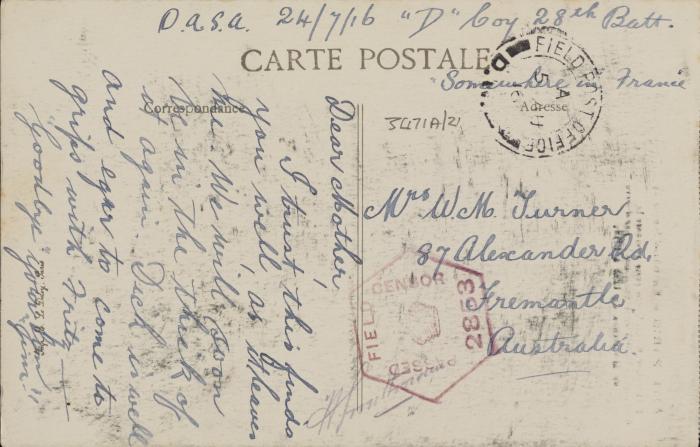 D.A.S.A. 24/7/16 "D" Coy 28th Batt.
CARTE POSTALE
"Somewhere in France
Correspondance
Adresse
3471A/21
FIELD POST OFFICE
D.
5 A
Dear Mother
I trust this finds
you well, as it leaves
me. We will soon
be in the thick of
it again. Dick is well
and eger to come to
grips with Fritz
Goodbye your son
"Jim"
Mrs W.M. Turner
87 Alexander Rd.
Fremantle
Australia.
PASSED FIELD CENSOR
2853